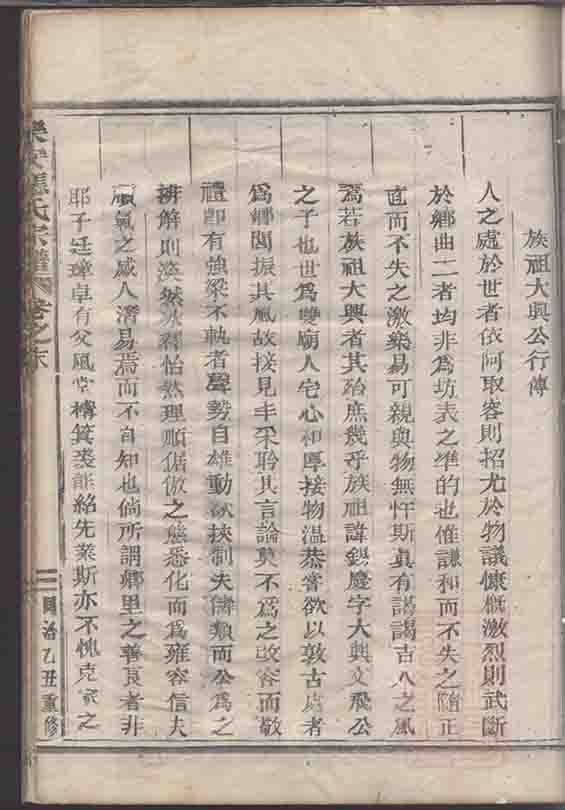 族祖大興公行傳
人之處於世者依阿取容則招尤於物議慷慨激烈則武斷
於鄉曲二者均非為坊表之準的也惟謙和而不失之隨正
直而不失之激樂易可親與物無忤斯真有謁謁吉人之風
焉若族祖大興者其殆庶幾乎族祖諱錫慶字大興文飛公
之子也世為雙廟人宅心和厚接物溫恭嘗欲以敦古處者
為鄉閭振其風故接見丰采聆其言論莫不為之改容而敬
禮即有強梁不軌者聲勢自雄動欲挾制夫儕類而公為之
辨解則渙然冰釋怡然理順倨傲之態悉化而為雍容信夫
順氣之感人濟易焉而不自知也倘所謂鄉里之善良者非
耶子廷瑋卓有父風堂構箕裘能紹先業斯亦不愧克家之
氏宗譜 卷之末
二 同治乙丑重修